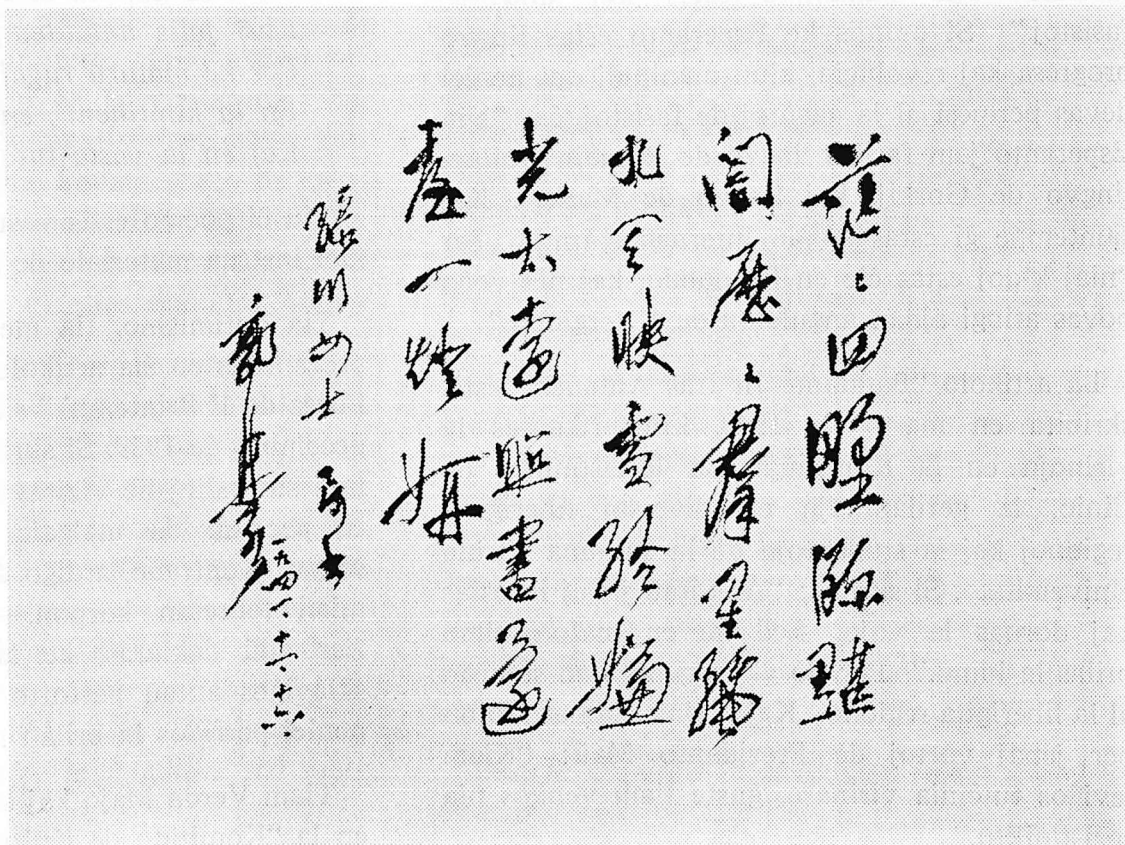 茫々四野瀰黮
闇歷々羣星麗
九天映雪終嫌
光太遠照書還
喜一燈妍
綠川女士
郭沫若
一九四一、十一、十六